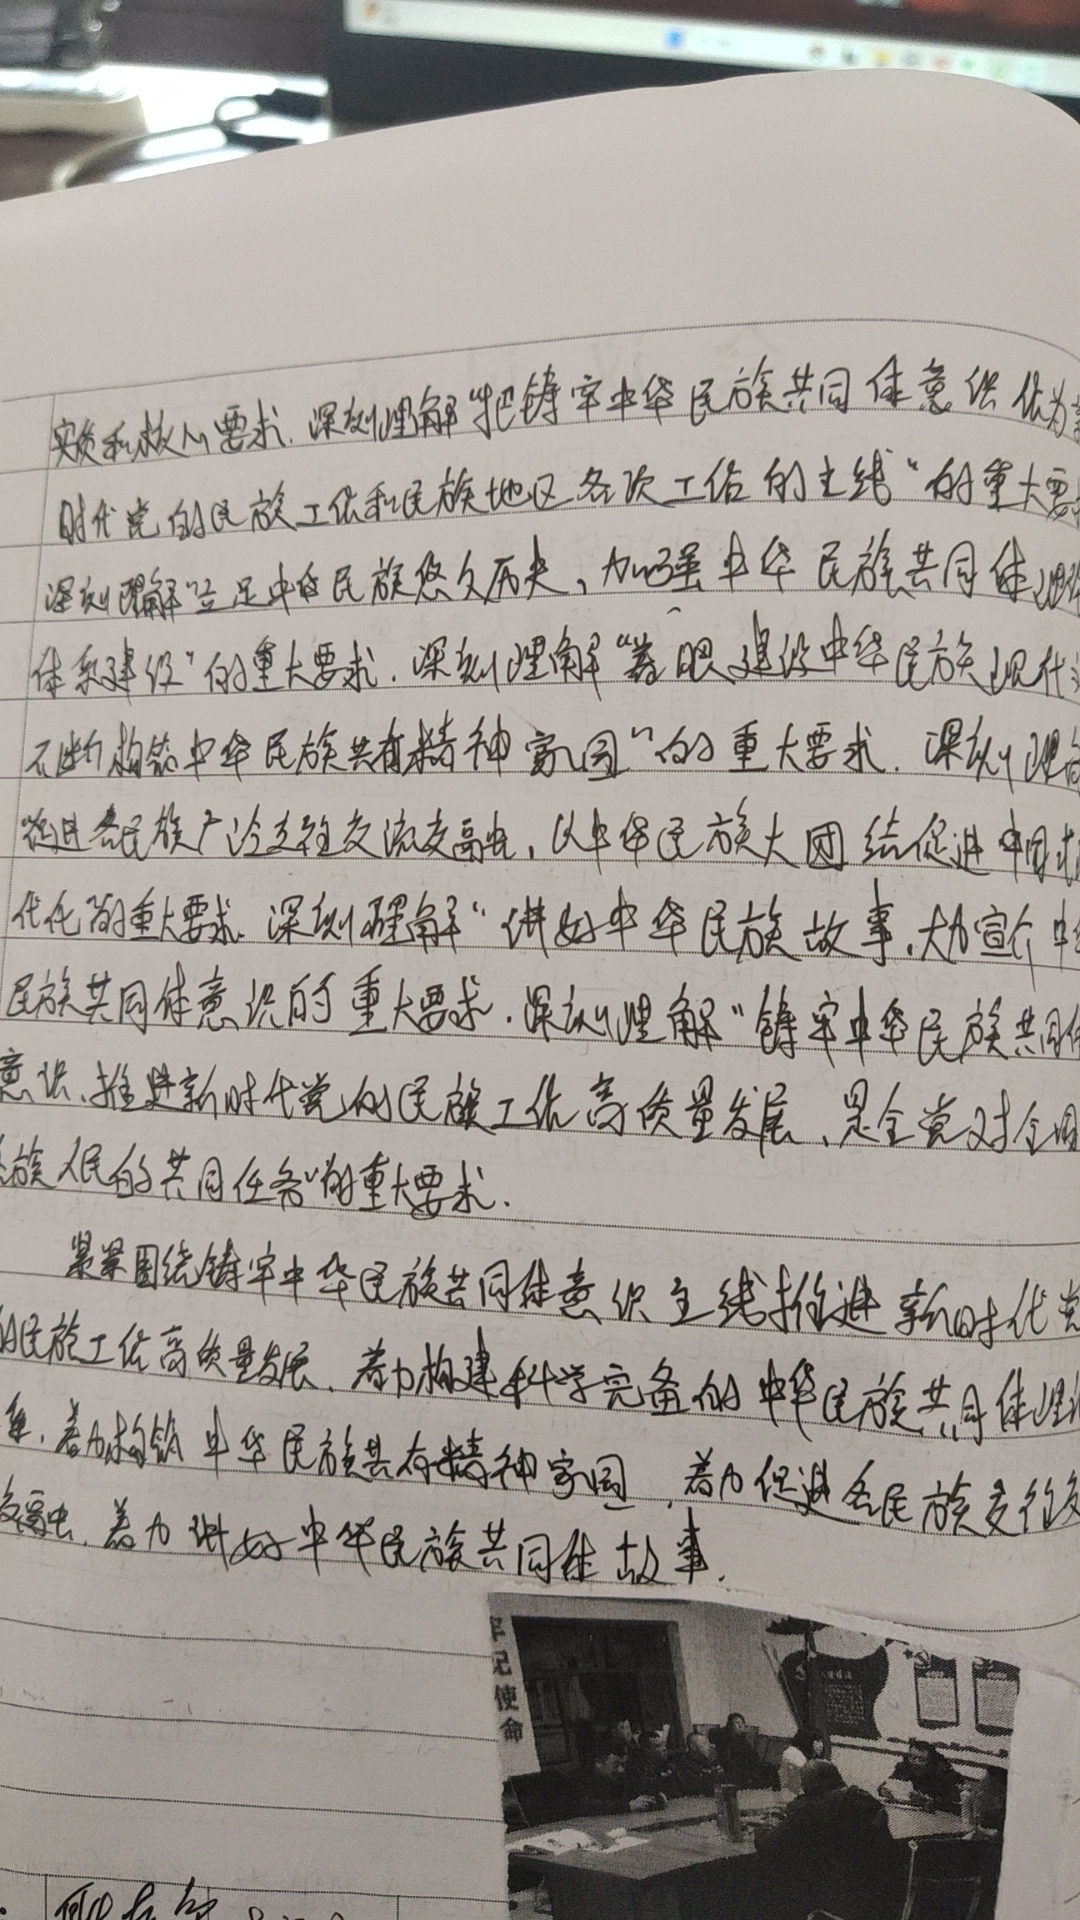 实质和核心要求.深刻理解“把铸牢中华民族共同体意识作为
时代党的民族工作和民族地区各项工作的主线”的重大要
深刻理解“立足中华民族悠久历史,加强中华民族共同体理
体系建设”的重大要求.深刻理解“着眼建设中华民族现代
不断构筑中华民族共有精神家园”的重大要求.深刻理
“促进各民族广泛交往交流交融,以中华民族大团结促进中国式
代化”的重大要求.深刻理解“讲好中华民族故事,大力宣介中华
民族共同体意识的重大要求.深刻理解“铸牢中华民族共同体
意识,推进新时代党的民族工作高质量发展,是全党对全国
族人民的共同任务”的重大要求.
紧紧围绕铸牢中华民族共同体意识主线推进新时代党
的民族工作高质量发展,着力构建科学完备的中华民族共同体理
系,着力构筑中华民族共有精神家园,着力促进各民族交往交
交融,着力讲好中华民族共同体故事.
牢记使命